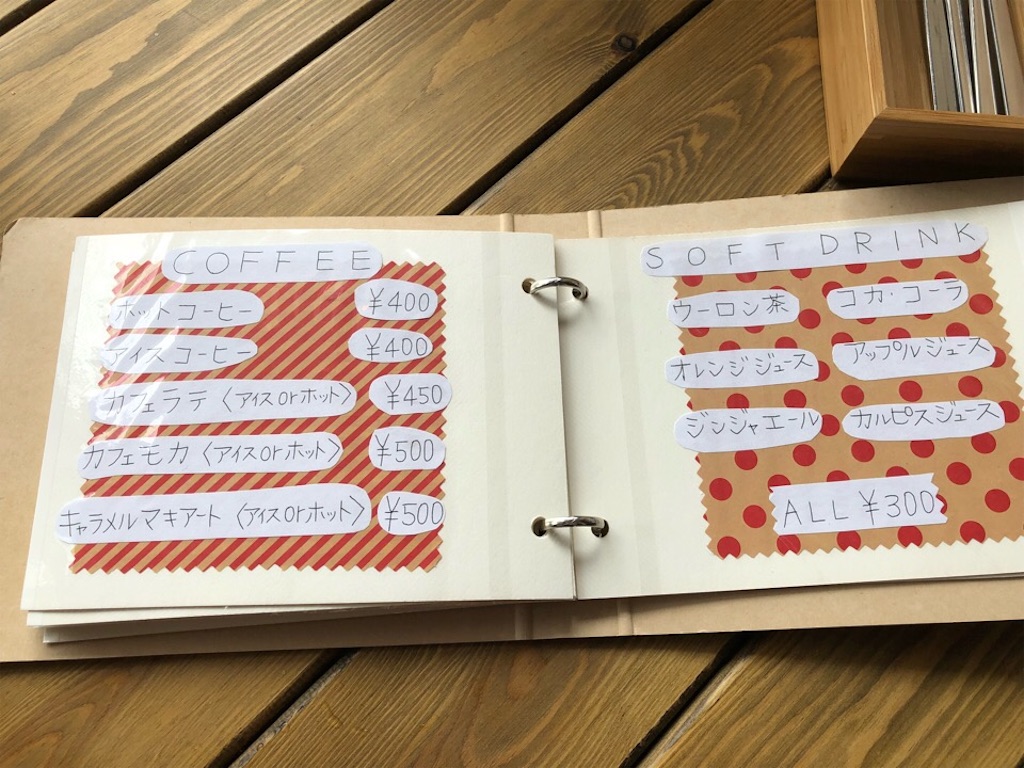 COFFEE
ホットコーヒー ¥400
アイスコーヒー ¥400
カフェラテ〈アイスorホット〉 ¥450
カフェモカ〈アイスorホット〉 ¥500
キャラメルマキアート〈アイスorホット〉 ¥500
SOFT DRINK
ウーロン茶 コカ・コーラ
オレンジジュース アップルジュース
ジンジャエール カルピスジュース
ALL ¥300